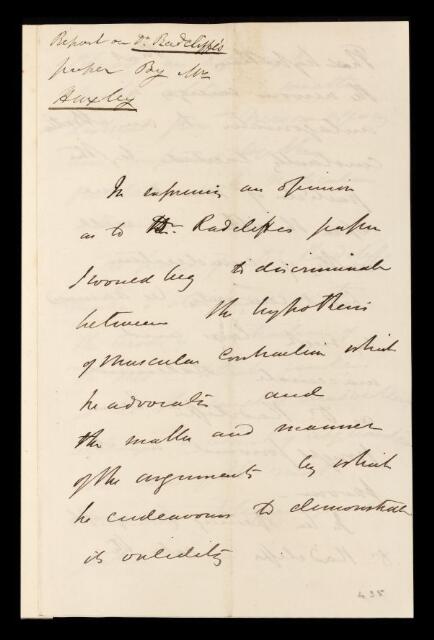 Report on Dr. Radcliffe's
paper By Mr
Huxley
In expressing an opinion
as to Dr. Radcliffe's paper
I would beg to discriminate
between the hypothesis
of Muscular Contraction which
he advocates and
the matter and manner
of the arguments by which
he endeavours to demonstrate
its validity
435